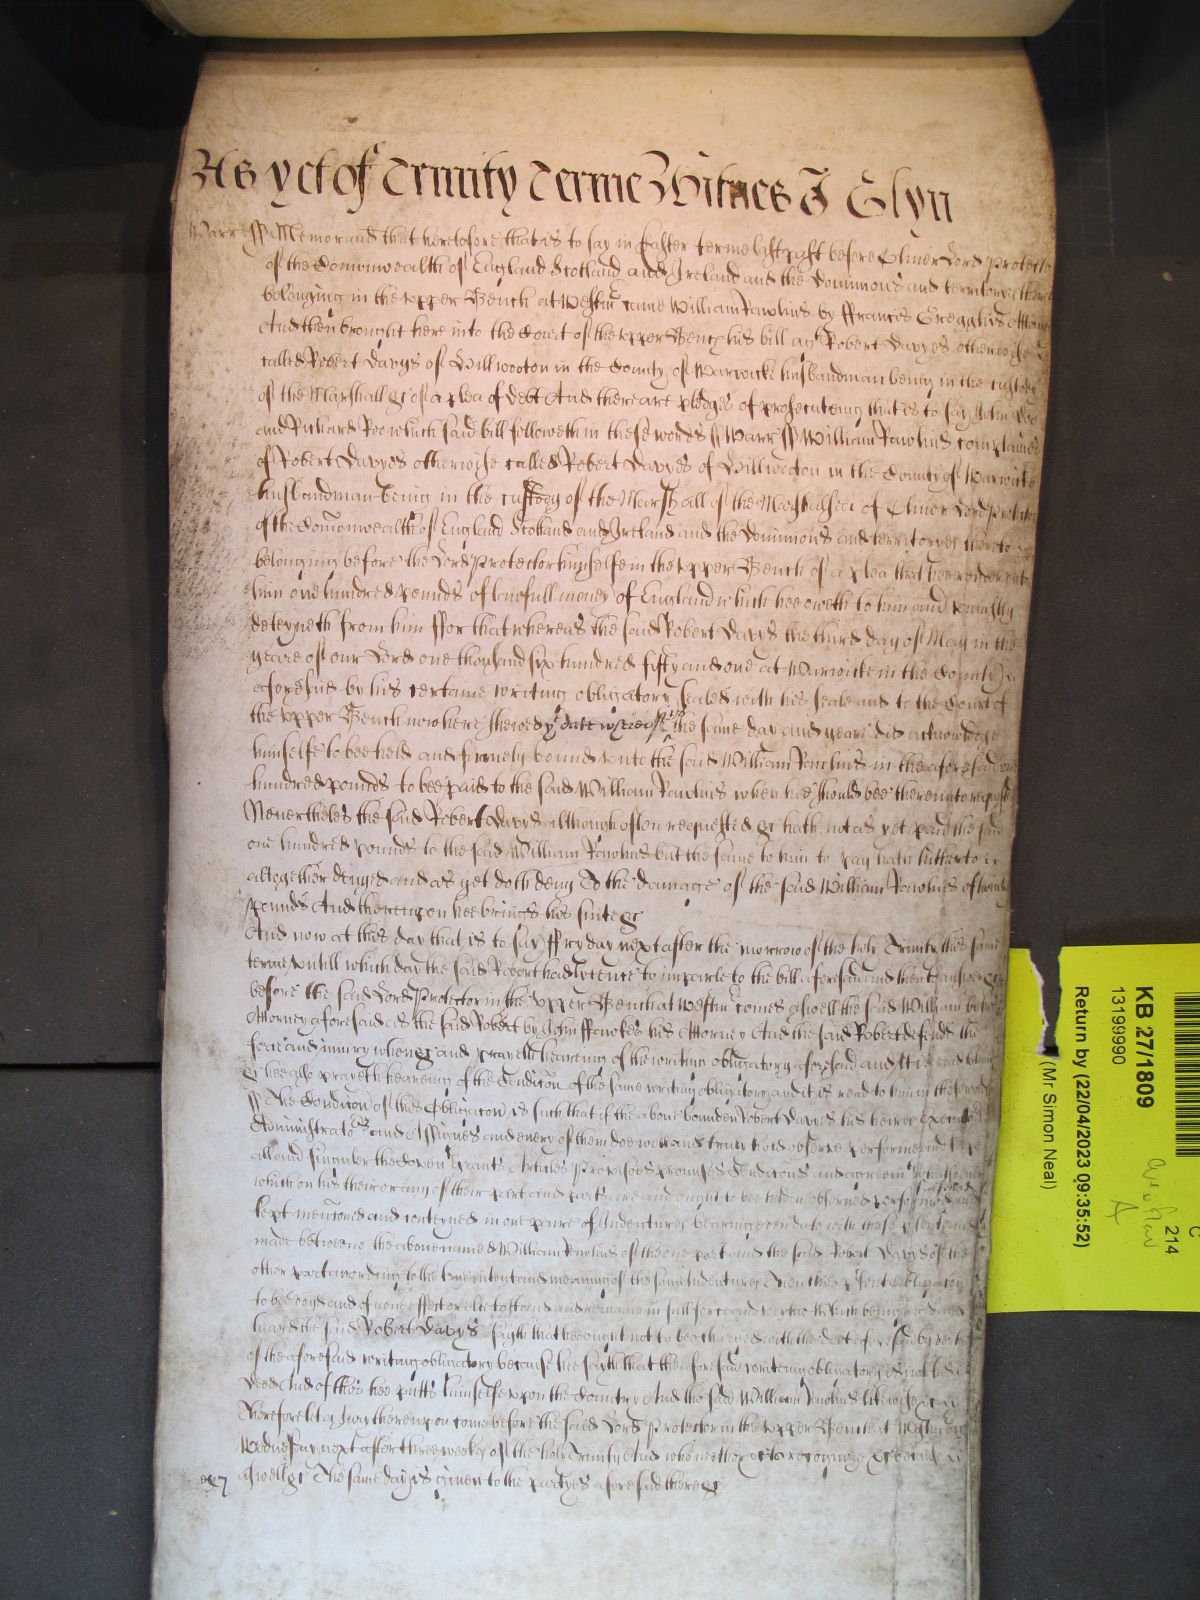 As yet of Trinity Terme Witnes J Glyn
Warr ss Memorand that heretofore that is to say in Easter terme last past before Oliver Lord Protector
of the Comonwealth of England Scotland and Ireland and the Dominions and territoryes thereto
belonging in the upper Bench at Westmr came William Rawlins by ffrancis Gregg his Attorney
And then brought here into the Court of the upper Bench his bill agt Robert Davyes otherwise
called Robert Davys of Billwooton in the County of Warwicke husbandman being in the custody
of the Marshall &c of a plea of debt And there are pledges of prosecuteing that is to say John Doo
and Richard Roo which said bill followeth in these words ss Warr ss William Rawlins complaines
of Robert Davyes otherwise called Robert Davyes of Billweeton in the County of Warwicke
husbandman being in the custody of the Marshall of the Marshalsea of Oliver Lord Protector
of the Comonwealth of England Scotland and Ireland and the Dominions and territoryes thereto
belonging before the Lord Protector himselfe in the upper Bench of a plea that hee render unto
him one hundred pounds of lawfull money of England which hee oweth to him and uniustly
deteyneth from him ffor that whereas the said Robert Davys the third day of May in the
yeare of our Lord one thousand six hundred fifty and one at Warwicke in the County
aforesaid by his certaine writing obligatory sealed with his seale and to the Court of
the upper Bench now here shewed ye date whereof is the same day and yeare did acknowledge
himselfe to bee held and firmely bound unto the said William Rawlins in the aforesaid one
hundred pounds to bee paid to the said William Rawlins when hee should bee thereunto required
Neverthelesse the said Robert Davys although often requested &c hath not as yet paid the said
one hundred pounds to the said William Rawlins but the same to him to pay hath hitherto
altogether denyed and as yet doth deny To the damage of the said William Rawlins of twenty
pounds And thereupon hee brings his suite &c
And now at this day that is to say ffryday next after the morrow of the holy Trinity this same
terme untill which day the said Robert had lycence to imparle to the bill aforesaid and then to answer &c
before the said Lord Protector in the upper Bench at Westmr comes aswell the said William by his
Attorney aforesaid as the said Robert by John ffowkes his Attorney And the said Robert defends the
force and iniury when &c and prayeth heareing of the writing obligatory aforesaid and It is read to him
&c hee also prayeth heareing of the Condicon of the same writing obligatory and it is read to him in these words
ss The Condicon of this Obligacon is such that if the above bounden Robert Davyes his heires Executors
Administrators and Assignes and every of them doe well and truly hold observe performe and keepe
all and singuler the Coven Grants Articles Provisoes promises Condicons and agreem
which on his their or any of their part and parts are and ought to bee holden observed performed and
kept mencioned and conteyned in one paire of Indentures beareing even date with these presents
made betweene the above named William Rawlins of the one part and the said Robert Davys of the
other part according to the true intent and meaning of the same Indentures Then this present obligacon
to bee voyd and of none effect or else to stand and remaine in full force and vertue Which being read and
heard the said Robert Davys sayth that hee ought not to bee charged with the debt aforesaid by vertue
of the aforesaid writing obligatory because hee sayth that the aforesaid writeing obligatory is not his
Deed And of this hee putts himselfe upon the Countrey And the said William Rawlins likewise &c
Therefore let a Jury thereupon come before the said Lord Protector in the upper Bench at Westmr on
Wednesday next after three weekes of the holy Trinity And who neither &c to recognize &c because
aswell &c The same day is given to the partyes aforesaid there &c
KB 27/1809
13199990
C
214
Return by (22/04/2023 09:35:52)
(Mr Simon Neal)
A